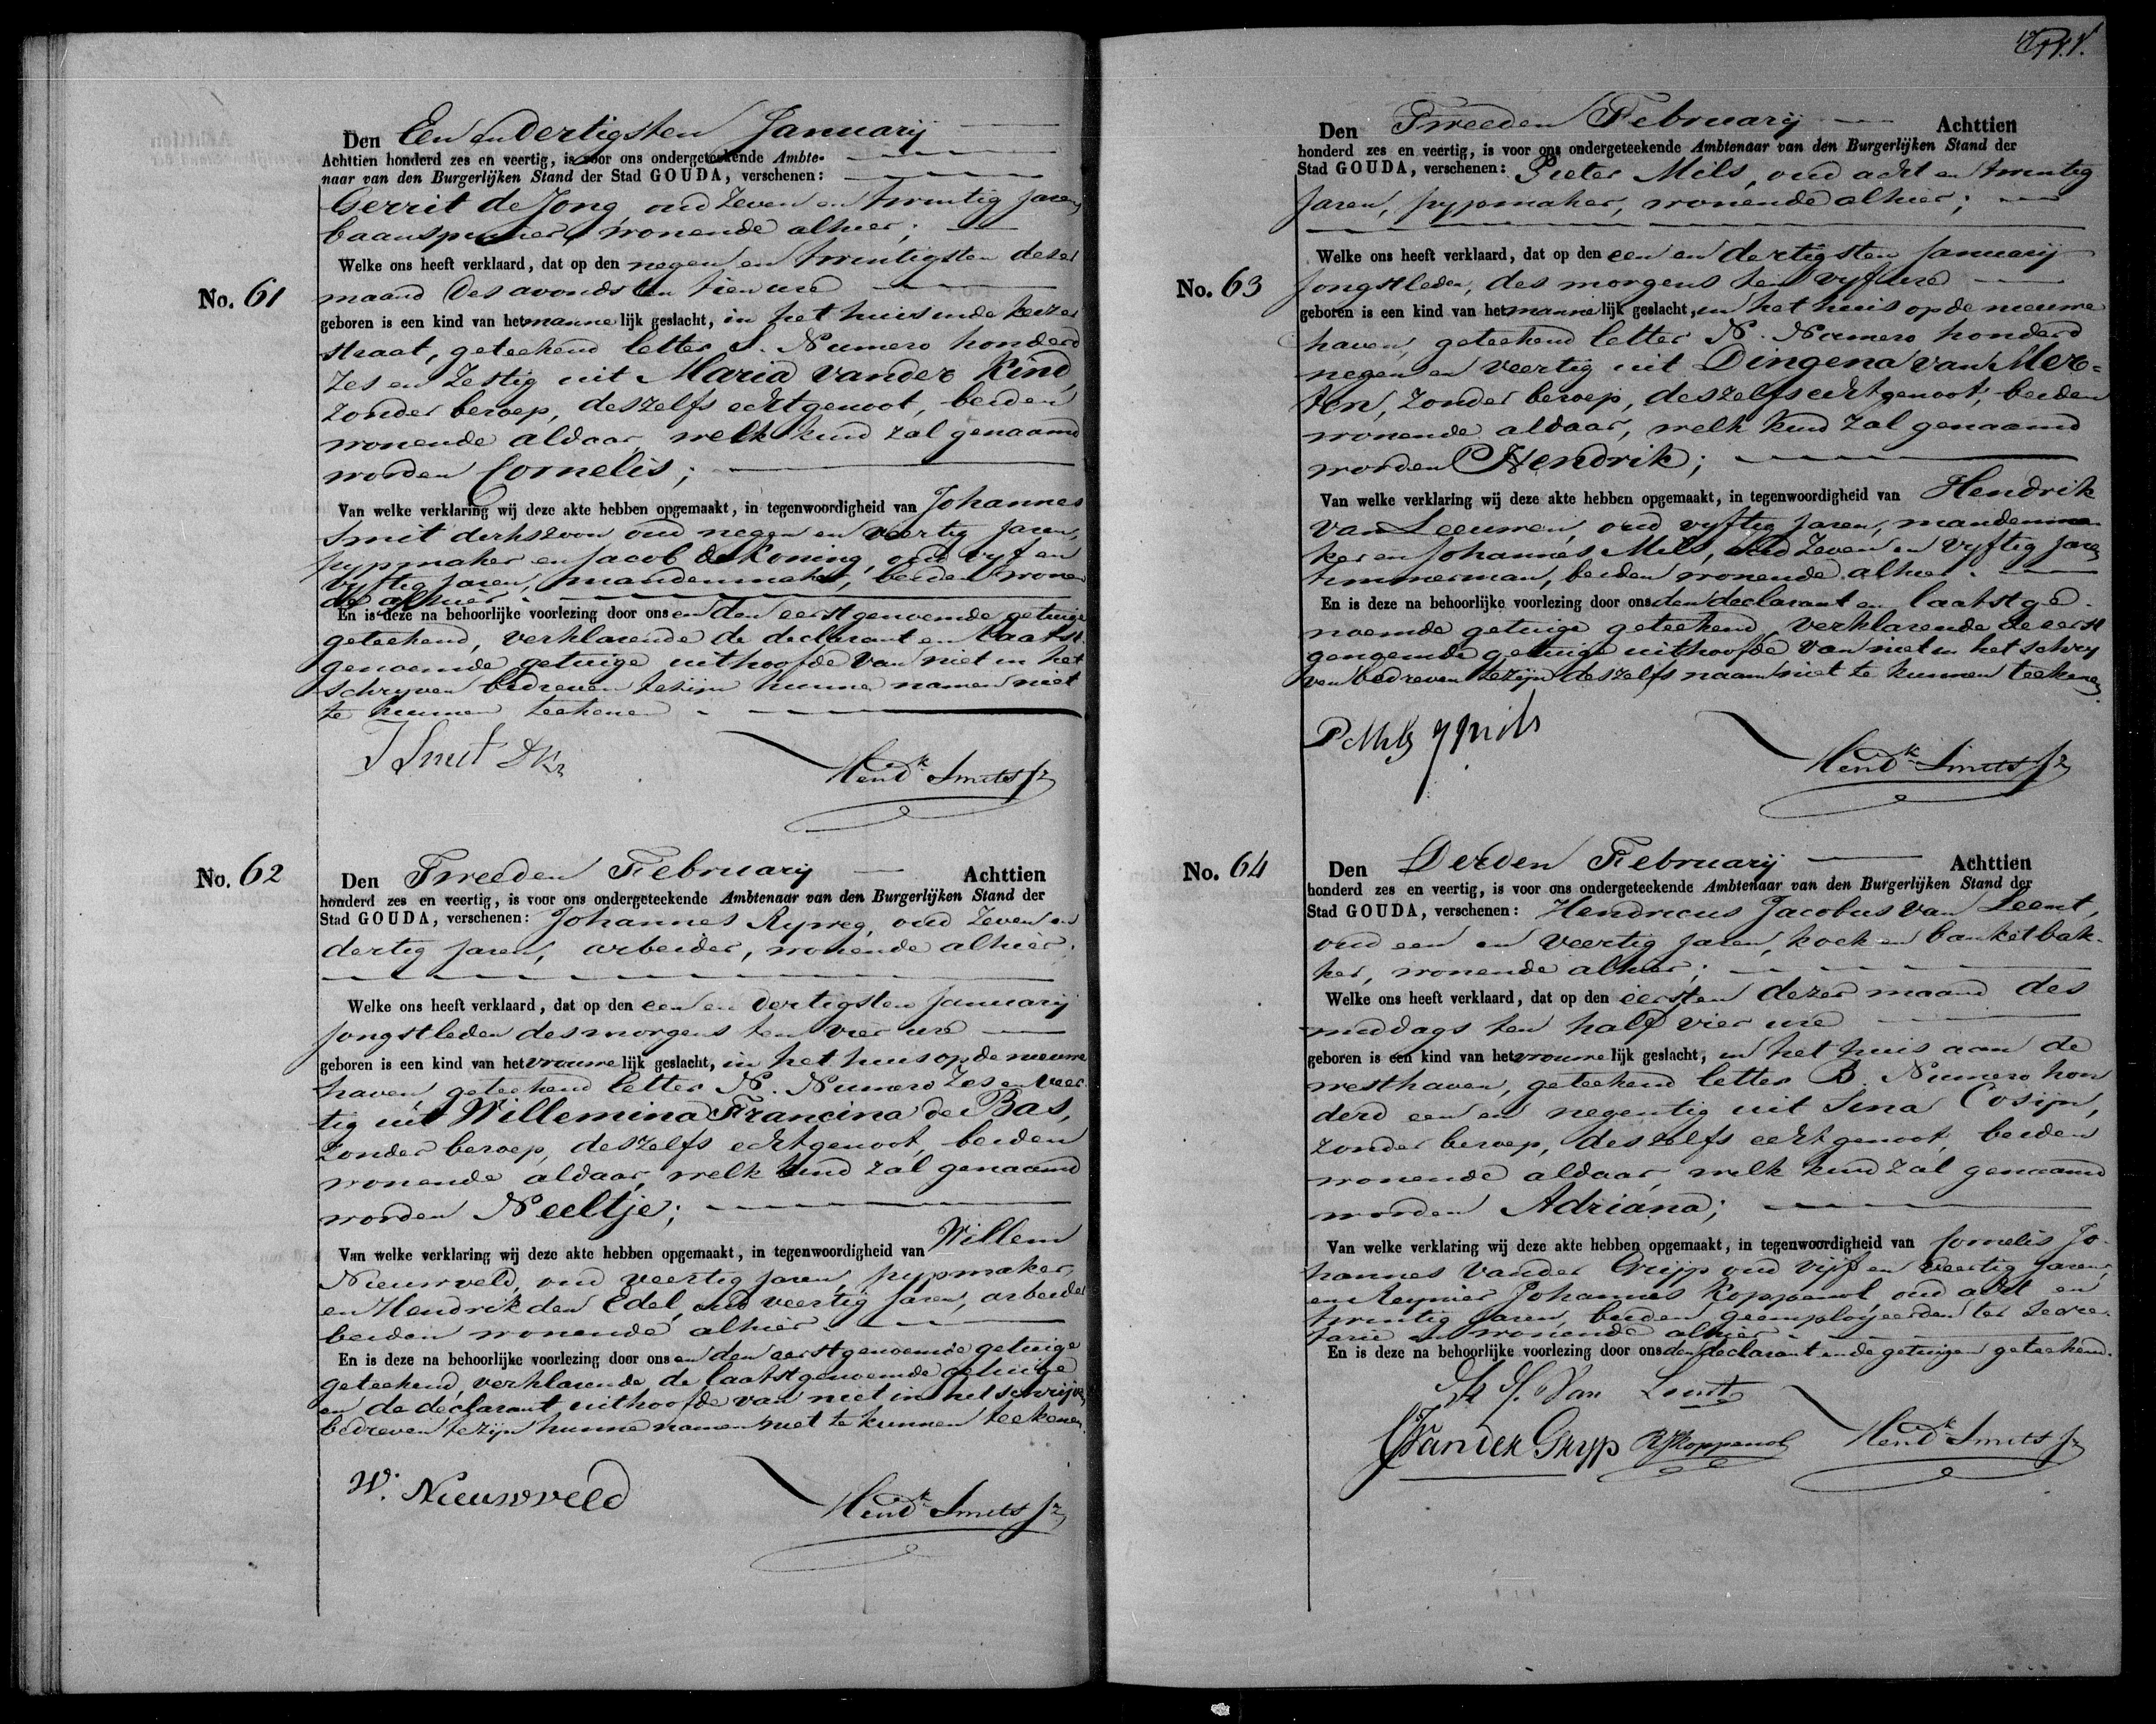 No. 61
Den Een en dertigsten Januarij
Achttien honderd zes en veertig, is voor ons ondergeteekende Ambte-
naar van den Burgerlijken Stand der Stad GOUDA, verschenen:
Gerrit de Jong, oud zeven en twintig jaren
baanspinner, wonende alhier;
Welke ons heeft verklaard, dat op den negen en twintigsten dezer
maand des avonds ten tien ure
geboren is een kind van het mannelijk geslacht, in het huis in de keizer
straat, geteekend letter S. Numero honderd
zes en zestig uit Maria van der Kind,
zonder beroep, deszelfs echtgenoot, beiden
wonende aldaar, welk kind zal genaamd
worden Cornelis;
Van welke verklaring wij deze akte hebben opgemaakt, in tegenwoordigheid van Johannes
Smit derkszoon oud negen en veertig jaren,
pypmaker en Jacob de Koning, oud vyf en
vyftig jaren, mandenmaker, beiden wonen
de alhier.
En is deze na behoorlijke voorlezing door ons en den eerstgenoemde getuige
geteekend, verklarende de declarant en laatst
genoemde getuige uithoofde van niet in het
schryven bedreven te zijn hunne namen niet
te kunnen teekenen.
J Smit DKz
Hendk Smits Jz
No. 62
Den Tweeden February Achttien
honderd zes en veertig, is voor ons ondergeteekende Ambtenaar van den Burgerlijken Stand der
Stad GOUDA, verschenen: Johannes Rypreg, oud zeven en
dertig jaren, arbeider, wonende alhier;
Welke ons heeft verklaard, dat op den een en dertigsten Januarij
jongstleden des morgens ten vier ure
geboren is een kind van het vrouwelijk geslacht, in het huis op de nieuwe
haven, geteekend letter N. Numero zes en veer
tig uit Willemina Francina de Bas,
zonder beroep, deszelfs echtgenoot, beiden
wonende aldaar, welk kind zal genaamd
worden Neeltje;
Van welke verklaring wij deze akte hebben opgemaakt, in tegenwoordigheid van Willem
Nieuwveld, oud veertig jaren, pypmaker
en Hendrik den Edel, oud veertig jaren, arbeider
beiden wonende alhier.
En is deze na behoorlijke voorlezing door ons en den eerstgenoemde getuige
geteekend, verklarende de laatstgenoemde getuige
en de declarant uithoofde van niet in het schrijven
bedreven te zijn hunne namen niet te kunnen teekenen.
W. Nieuwveld
Hendk Smits Jz
No. 63
Den Tweeden February Achttien
honderd zes en veertig, is voor ons ondergeteekende Ambtenaar van den Burgerlijken Stand der
Stad GOUDA, verschenen: Pieter Mils, oud acht en twintig
jaren, pypmaker, wonende alhier;
Welke ons heeft verklaard, dat op den een en dertigsten Januarij
jongstleden, des morgens ten vyf ure
geboren is een kind van het mannelijk geslacht, in het huis op de nieuwe
haven, geteekend letter N. Numero honderd
negen en veertig uit Dingena van Mer-
ten, zonder beroep, deszelfs echtgenoot, beiden
wonende aldaar, welk kind zal genaamd
worden Hendrik;
Van welke verklaring wij deze akte hebben opgemaakt, in tegenwoordigheid van Hendrik
van Leeuwen, oud vyftig jaren, mandenma
ker en Johannes Mils, oud zeven en vyftig jaren
timmerman, beiden wonende alhier.
En is deze na behoorlijke voorlezing door ons den declarant en laatstge-
noemde getuige geteekend, verklarende de eerst
genoemde getuige uithoofde van niet in het schry
ven bedreven te zijn deszelfs naam niet te kunnen teekenen
P Mils J Mils
Hendk Smits Jz
No. 64
Den Derden February Achttien
honderd zes en veertig, is voor ons ondergeteekende Ambtenaar van den Burgerlijken Stand der
Stad GOUDA, verschenen: Hendricus Jacobus van Leent,
oud een en veertig jaren, koek en banketbak-
ker, wonende alhier;
Welke ons heeft verklaard, dat op den eersten dezer maand des
middags ten half vier ure
geboren is een kind van het vrouwelijk geslacht, in het huis aan de
westhaven, geteekend letter B. Numero hon
derd een en negentig uit Sina Cosijn,
zonder beroep, deszelfs echtgenoot, beiden
wonende aldaar, welk kind zal genaamd
worden Adriana;
Van welke verklaring wij deze akte hebben opgemaakt, in tegenwoordigheid van Cornelis Jo-
hannes van der Grijp oud vijf en veertig jaren,
en Reynier Johannes Koppenol, oud acht en
twintig jaren, beiden geemployeerden ter secre-
tarie en wonende alhier.
En is deze na behoorlijke voorlezing door ons den declarant en de getuigen geteekend.
H J. van Leent
CJ van der Gryp RJKoppenol Hendk Smits Jz